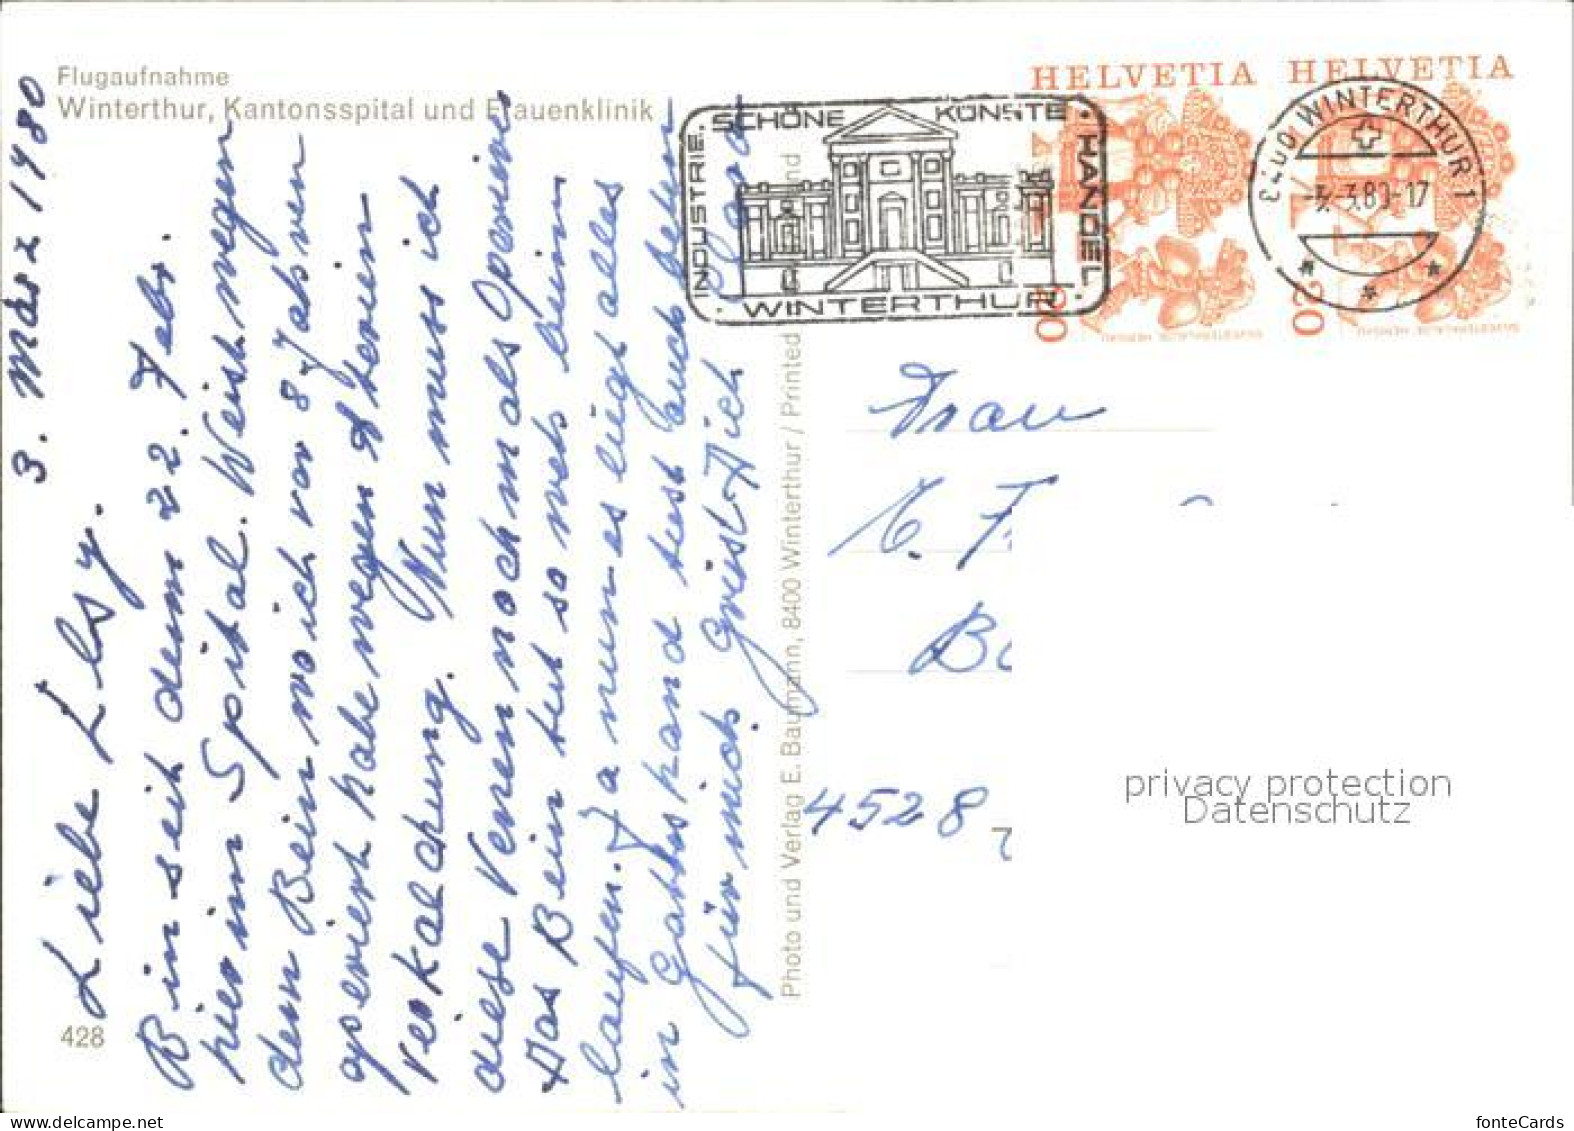 Flugaufnahme
Winterthur, Kantonsspital und Frauenklinik
3. März 1980
Liebe Elsy.
Bin seit dem 22. Febr.
hier im Spital. Weist wegen
dem Bein wo ich vor 8 Jahren
operiert habe wegen Arterien
verkalchung. Nun muss ich
diese Venen nochmals Operieren
Das Bein tut so weh beim
laufen. Ja nun es liegt alles
in Gottes hand tust auch beten
für mich. Grüst Dich
428
Photo und Verlag E. Baumann, 8400 Winterthur / Printed
INDUSTRIE. SCHÖNE KÜNSTE · HANDEL
· WINTERTHUR ·
HELVETIA
HELVETIA
20
20
8400 WINTERTHUR 1
3.80-17
Frau
4528
privacy protection
Datenschutz
fonteCards